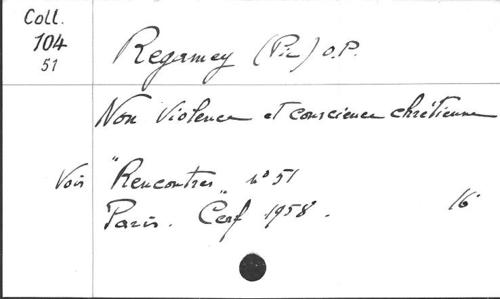 Coll.
104
51
Regamey (Pie) O.P.
Non Violence et conscience chrétienne
Voir "Rencontres" n° 51
Paris. Cerf 1958. 16°